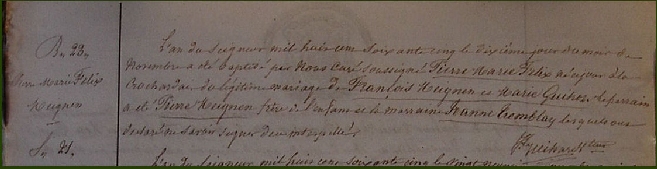 Bn 23
L'an du Seigneur mil huit cent soixante cinq le dixième jour du mois de
Pierre Marie Félix
Novembre a été baptisé par Nous curé soussigné Pierre Marie Félix né hier à la
du légitime mariage de François Heugnon et Marie Guiho Le parrain
a été Pierre Heugnon frère de l'enfant et la marraine Jeanne Tremblay lesquels ont
déclaré ne savoir signer de ce interpellés
L'an du Seigneur mil huit cent soixante cinq le vingt